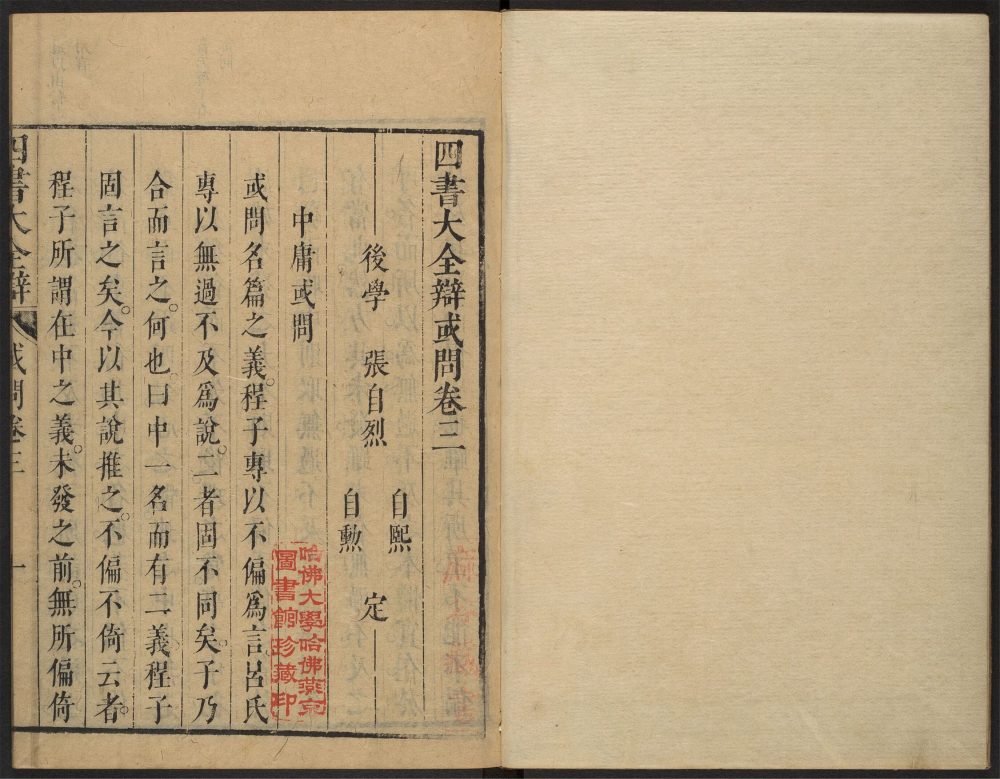 四書大全辯或問卷三
後學 張自烈 自熙 自勲 定
中庸或問
或問名篇之義程子專以不偏爲言呂氏
專以無過不及爲說二者固不同矣子乃
合而言之何也曰中一名而有二義程子
固言之矣今以其說推之不偏不倚云者
程子所謂在中之義未發之前無所偏倚
四書大全辯 或問卷三 一
哈佛大學哈佛燕京
圖書館珍藏印